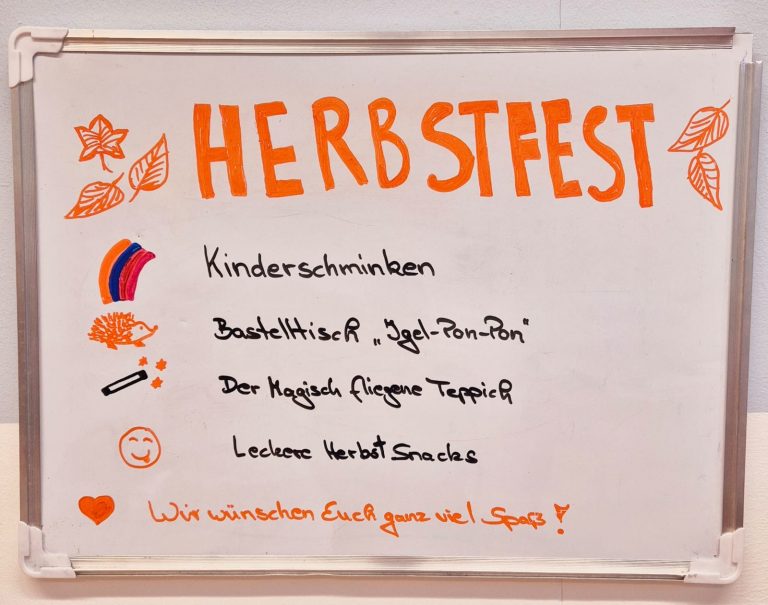 HERBSTFEST
Kinderschminken
Basteltisch „Igel-Pon-Pon“
Der Magisch fliegene Teppich
Leckere Herbst Snacks
Wir wünschen Euch ganz viel Spaß!